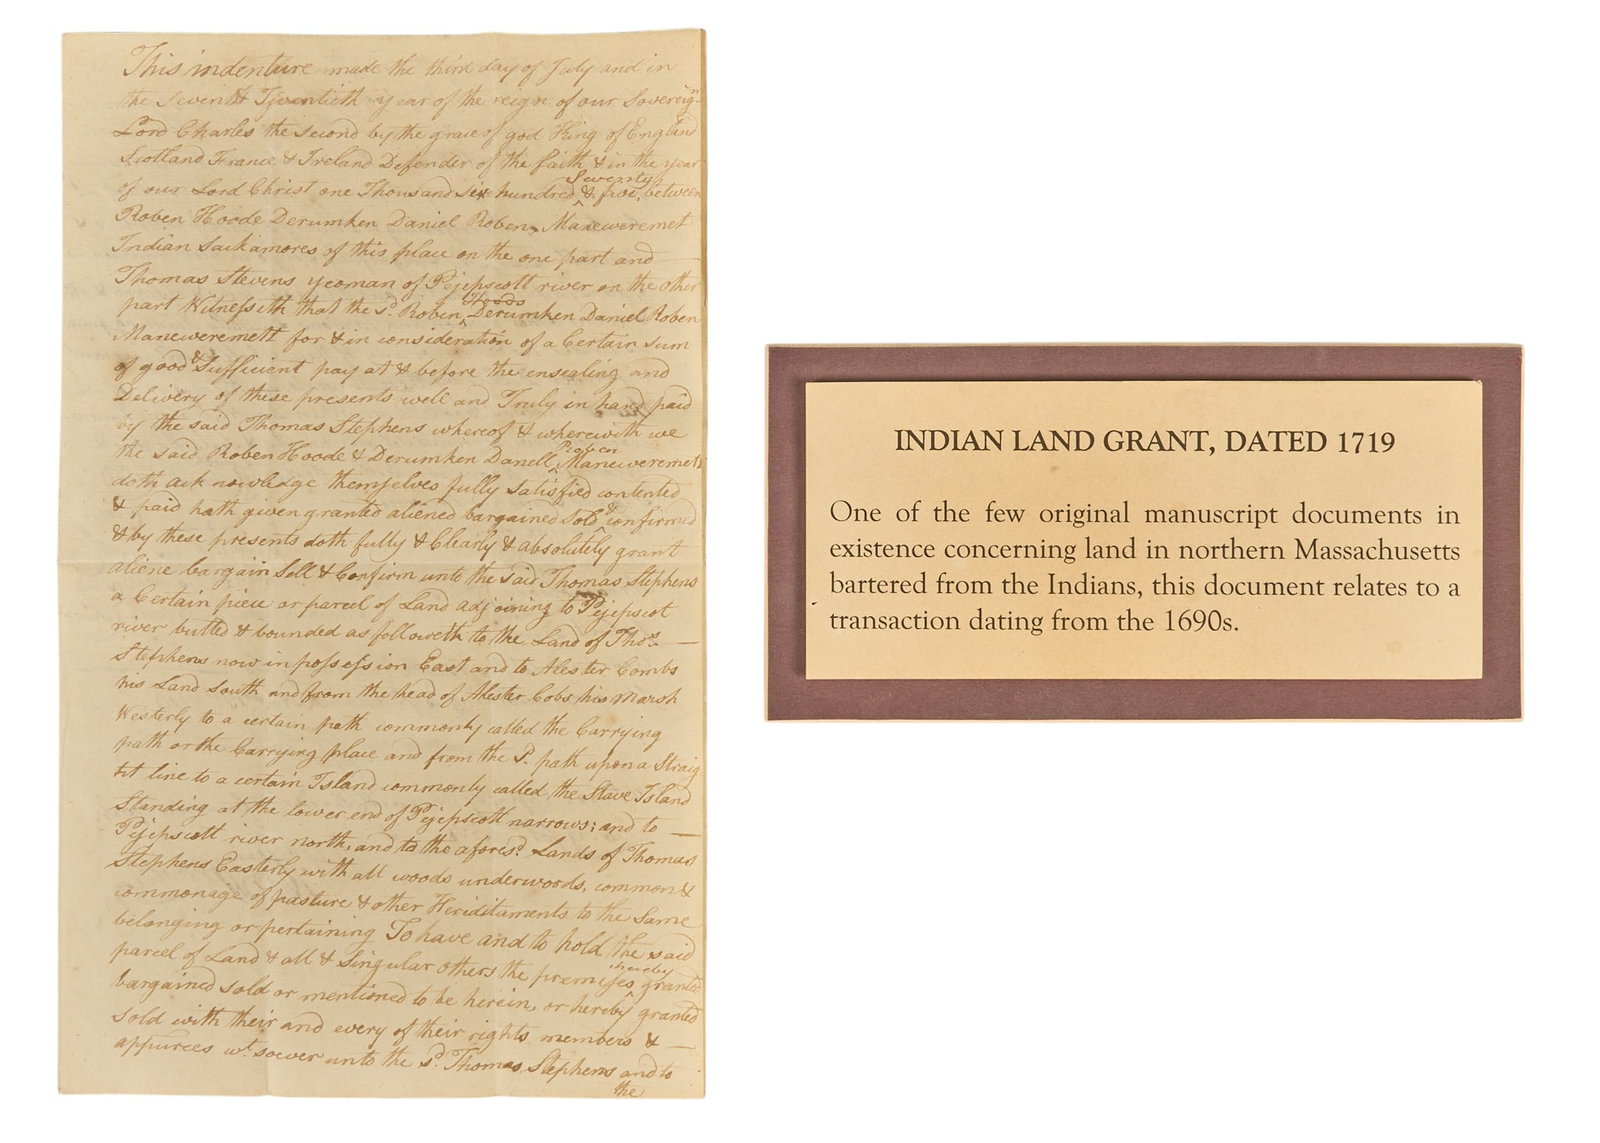 This indenture made the third day of July and in
the Seventh & Twentieth year of the reign of our Sovereign
Lord Charles the second by the grace of god King of England
Scotland France & Ireland Defender of the faith & in the year
of our Lord Christ one Thousand six hundred Seventy & five, between
Roben Hoode Derumken Daniel Roben, Maneweremet
Indian Sackamores of this place on the one part and
Thomas Stevens yeoman of Pejepscott river on the other
part Witnesseth that the sd. Roben Hoods Derumken Daniel Roben
Maneweremett for & in consideration of a Certain sum
of good & Sufficient pay at & before the ensealing and
Delivery of these presents well and Truly in hand paid
by the said Thomas Stephens whereof & wherewith we
the said Roben Hoode & Derumken Danell Roben Maneweremett
doth acknowledge themselves fully satisfied contented
& paid hath given granted aliened bargained sold & confirmed
& by these presents doth fully & Clearly & absolutely grant
aliene bargain Sell & Confirm unto the said Thomas Stephens
a Certain piece or parcel of Land adjoining to Pejepscot
river butted & bounded as followeth to the Land of Thos.
Stephens now in possession East and to Alester Combs
his Land South and from the head of Alester Cobs his marsh
Westerly to a certain path commonly called the Carrying
path or the Carrying place and from the sd. path upon a Straig
ht line to a certain Island commonly called the Stave Island
Standing at the lower end of Pejepscott narrows; and to
Pejepscott river north, and to the aforesd. Lands of Thomas
Stephens Easterly with all woods underwoods, common &
commonage of pasture & other Heriditaments to the Same
belonging or pertaining To have and to hold the said
parcel of Land & all & Singular others the premises hereby granted
bargained sold or mentioned to be herein, or hereby granted
sold with their and every of their rights members &
appurces wt. soever unto the sd. Thomas Stephens and to
the
INDIAN LAND GRANT, DATED 1719
One of the few original manuscript documents in
existence concerning land in northern Massachusetts
bartered from the Indians, this document relates to a
transaction dating from the 1690s.